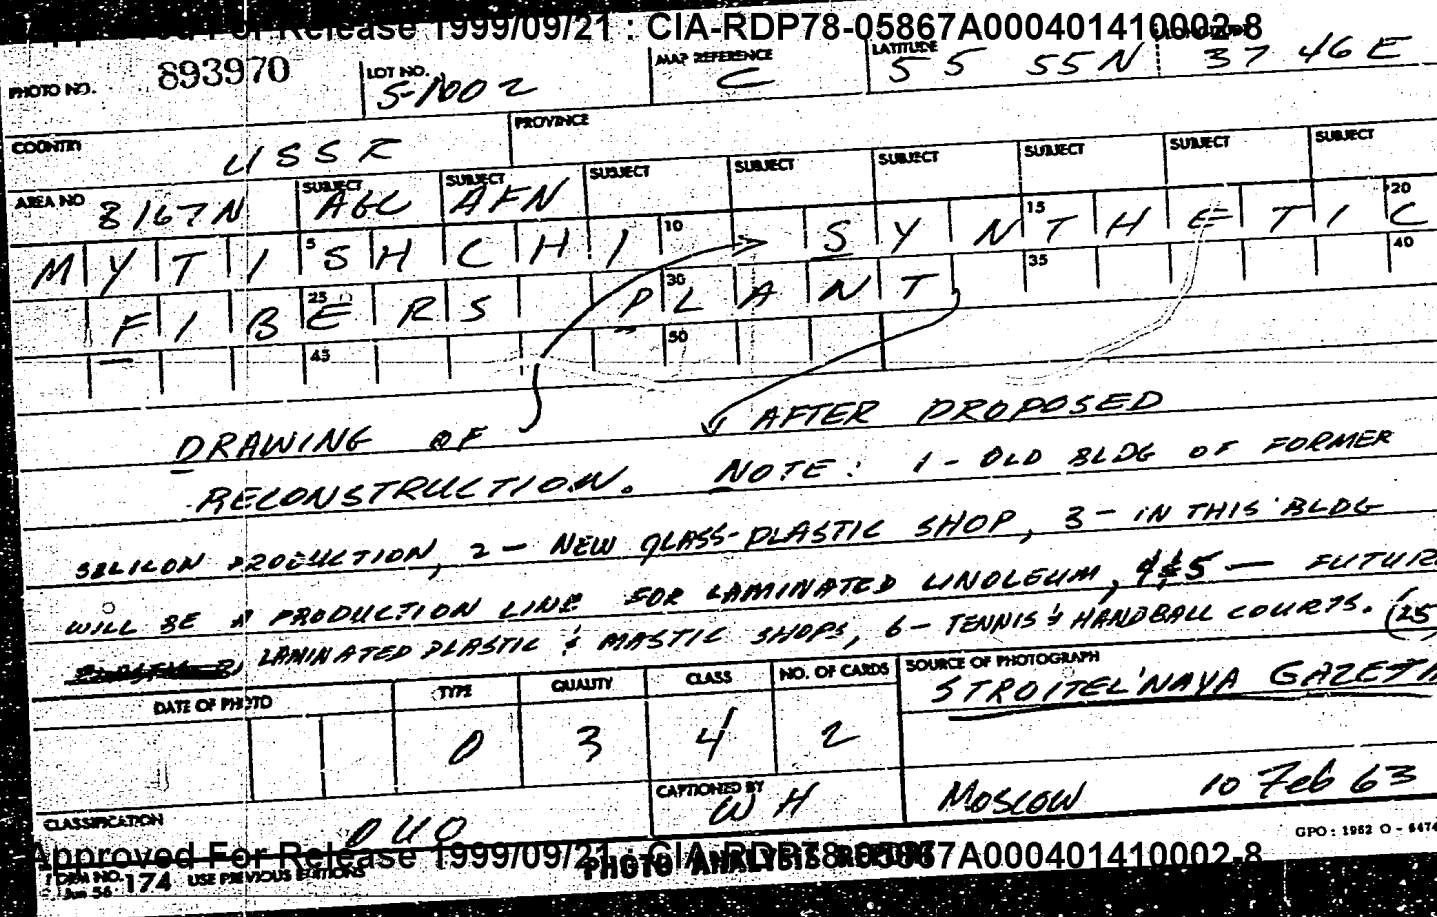 Approved For Release 1999/09/21 : CIA-RDP78-05867A000401410002-8
PHOTO NO. 893970 LOT NO. S-1002 MAP REFERENCE C LATITUDE 55 55N LONGITUDE 37 46E
COUNTRY USSR PROVINCE
AREA NO 8167N SUBJECT AGC SUBJECT AFN SUBJECT SUBJECT SUBJECT SUBJECT SUBJECT SUBJECT
MYTI 5 SHCHI 10 SYN 15 THETI 20 C
FIB 25 ERS P 30 LANT 35 40
45 50
DRAWING OF AFTER PROPOSED
RECONSTRUCTION. NOTE: 1 - OLD BLDG OF FORMER
SELICON PRODUCTION, 2 - NEW GLASS-PLASTIC SHOP, 3 - IN THIS BLDG
WILL BE A PRODUCTION LINE FOR LAMINATED LINOLEUM, 4 & 5 - FUTURE
LAMINATED PLASTIC & MASTIC SHOPS, 6 - TENNIS & HANDBALL COURTS. (25
DATE OF PHOTO TYPE QUALITY CLASS NO. OF CARDS SOURCE OF PHOTOGRAPH
0 3 4 2 STROITEL'NAYA GAZETA
CAPTIONED BY WH MOSCOW 10 Feb 63
CLASSIFICATION OUO
GPO: 1962 O - 6474
Approved For Release 1999/09/21 : CIA-RDP78-05867A000401410002-8
FORM NO. 174 USE PREVIOUS EDITIONS PHOTO ANALYSIS REPORT
Jun 56